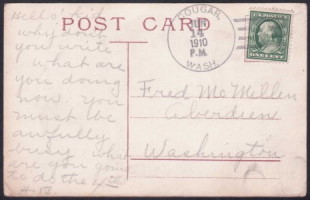 POST CARD
COUGAR,
JUN
14
1910
P.M.
WASH.
U.S. POSTAGE
ONE CENT
Hello kid
why dont
you write
what are
you doing
now. you
must be
awfully
busy what
are you going
to do the 4th
Fred McMellen
Aberdeen
Washington